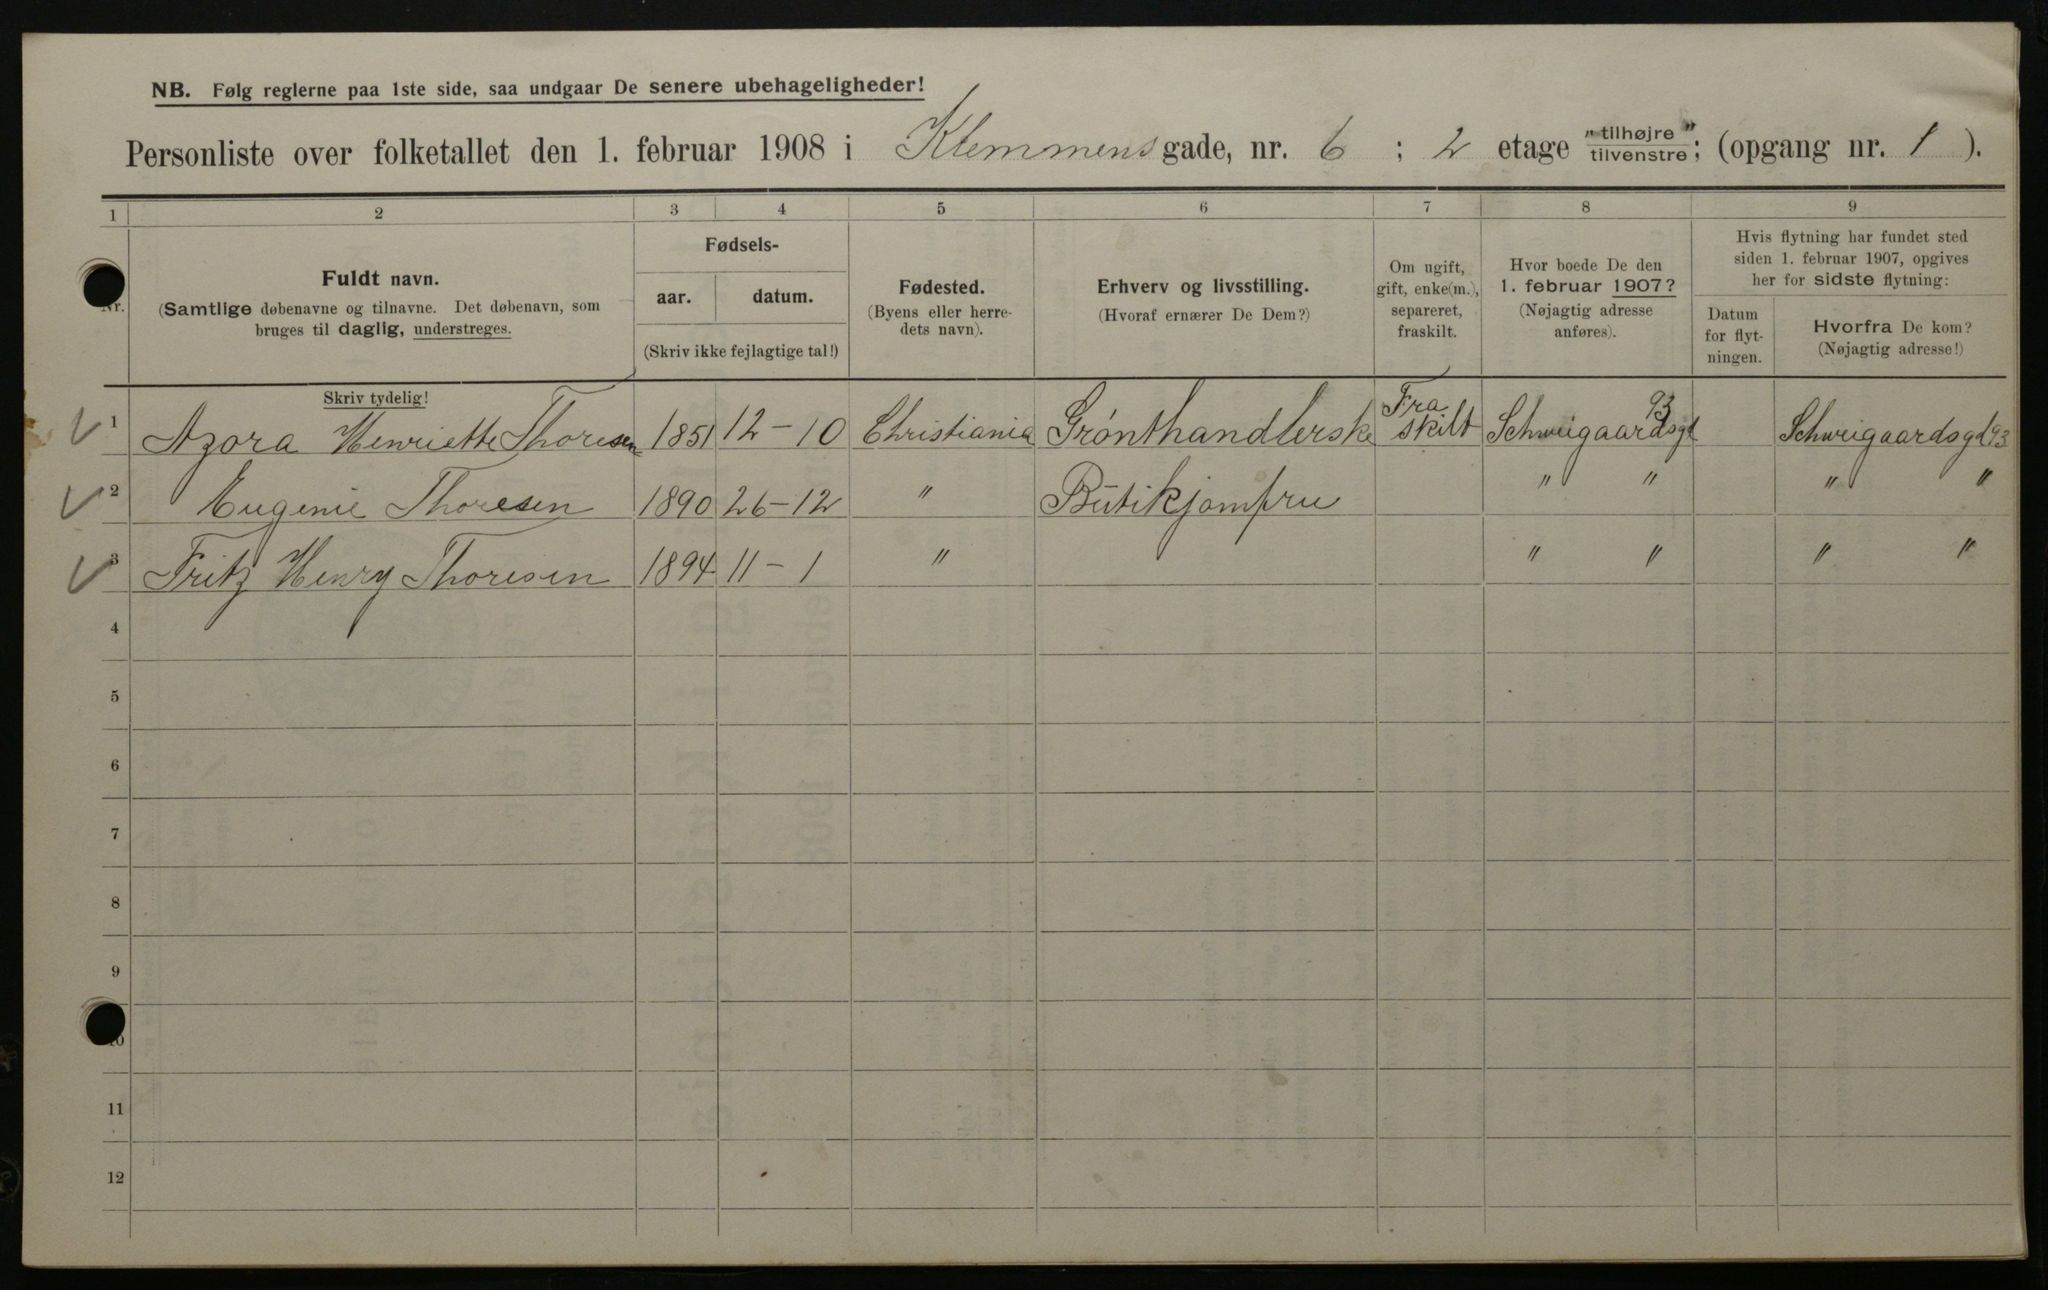 NB. Følg reglerne paa 1ste side, saa undgaar De senere ubehageligheder!
Personliste over folketallet den 1. februar 1908 i Klemmensgade, nr. 6 ; 2 etage „tilhøjre” tilvenstre; (opgang nr. 1 ).
1 2 3 4 5 6 7 8 9
Nr.
Fuldt navn.
(Samtlige døbenavne og tilnavne. Det døbenavn, som
bruges til daglig, understreges.
Fødsels-
aar. datum.
(Skriv ikke fejlagtige tal!)
Fødested.
(Byens eller herre-
dets navn).
Erhverv og livsstilling.
(Hvoraf ernærer De Dem?)
Om ugift,
gift, enke(m.),
separeret,
fraskilt.
Hvor boede De den
1. februar 1907?
(Nøjagtig adresse
anføres).
Hvis flytning har fundet sted
siden 1. februar 1907, opgives
her for sidste flytning:
Datum
for flyt-
ningen.
Hvorfra De kom?
(Nøjagtig adresse!)
Skriv tydelig!
1 Azora Henriette Thoresen 1851 12-10 Christiania Grønthandlerske Fra skilt Schweigaardsgd 93 Schweigaardsgd 93
2 Eugenie Thoresen 1890 26-12 " Butikjomfru " " " "
3 Fritz Henry Thoresen 1894 11-1 " " " " "
4
5
6
7
8
9
10
11
12